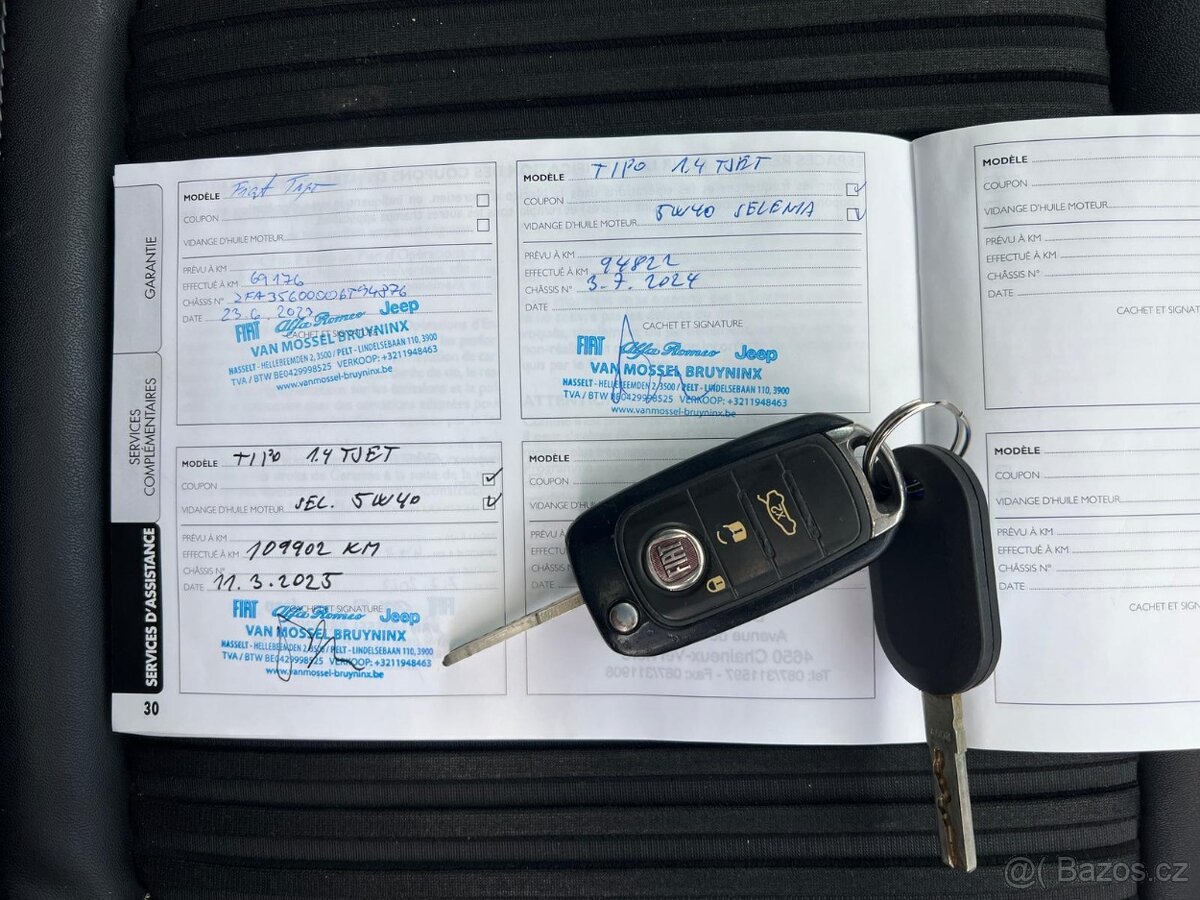 GARANTIE
SERVICES
COMPLÉMENTAIRES
SERVICES D'ASSISTANCE
30
MODÈLE Fiat Tipo
COUPON
VIDANGE D'HUILE MOTEUR
PRÉVU À KM
EFFECTUÉ À KM 69176
CHÂSSIS N° ZFA35600006T94876
DATE 23.6.2023
CACHET ET SIGNATURE
FIAT Alfa Romeo Jeep
VAN MOSSEL BRUYNINX
HASSELT - HELLEBEEMDEN 2, 3500 / PELT - LINDELSEBAAN 110, 3900
TVA / BTW BE0429998525 VERKOOP: +3211948463
www.vanmosselbruyninx.be
MODÈLE TIPO 1.4 TJET
COUPON
VIDANGE D'HUILE MOTEUR 5W40 SELENIA
PRÉVU À KM
EFFECTUÉ À KM 94822
CHÂSSIS N° 3-7.2024
DATE
CACHET ET SIGNATURE
FIAT Alfa Romeo Jeep
VAN MOSSEL BRUYNINX
HASSELT - HELLEBEEMDEN 2, 3500 / PELT - LINDELSEBAAN 110, 3900
TVA / BTW BE0429998525 VERKOOP: +3211948463
www.vanmossel-bruyninx.be
MODÈLE TIPO 1.4 TJET
COUPON
VIDANGE D'HUILE MOTEUR SEL. 5W40
PRÉVU À KM
EFFECTUÉ À KM 109902 KM
CHÂSSIS N°
DATE 11.3.2025
CACHET ET SIGNATURE
FIAT Alfa Romeo Jeep
VAN MOSSEL BRUYNINX
HASSELT - HELLEBEEMDEN 2, 3500 / PELT - LINDELSEBAAN 110, 3900
TVA / BTW BE0429998525 VERKOOP: +3211948463
www.vanmossel-bruyninx.be
MODÈLE
COUPON
VIDANGE D'HUILE
PRÉVU À KM
EFFECTUÉ
CHÂSSIS
DATE
MODÈLE
COUPON
VIDANGE D'HUILE MOTEUR
PRÉVU À KM
EFFECTUÉ À KM
CHÂSSIS N°
DATE
CACHET ET SIGNAT
MODÈLE
COUPON
VIDANGE D'HUILE MOTEUR
PRÉVU À KM
EFFECTUÉ À KM
CHÂSSIS N°
DATE
CACHET ET SIG
FIAT
x2
@( Bazos.cz